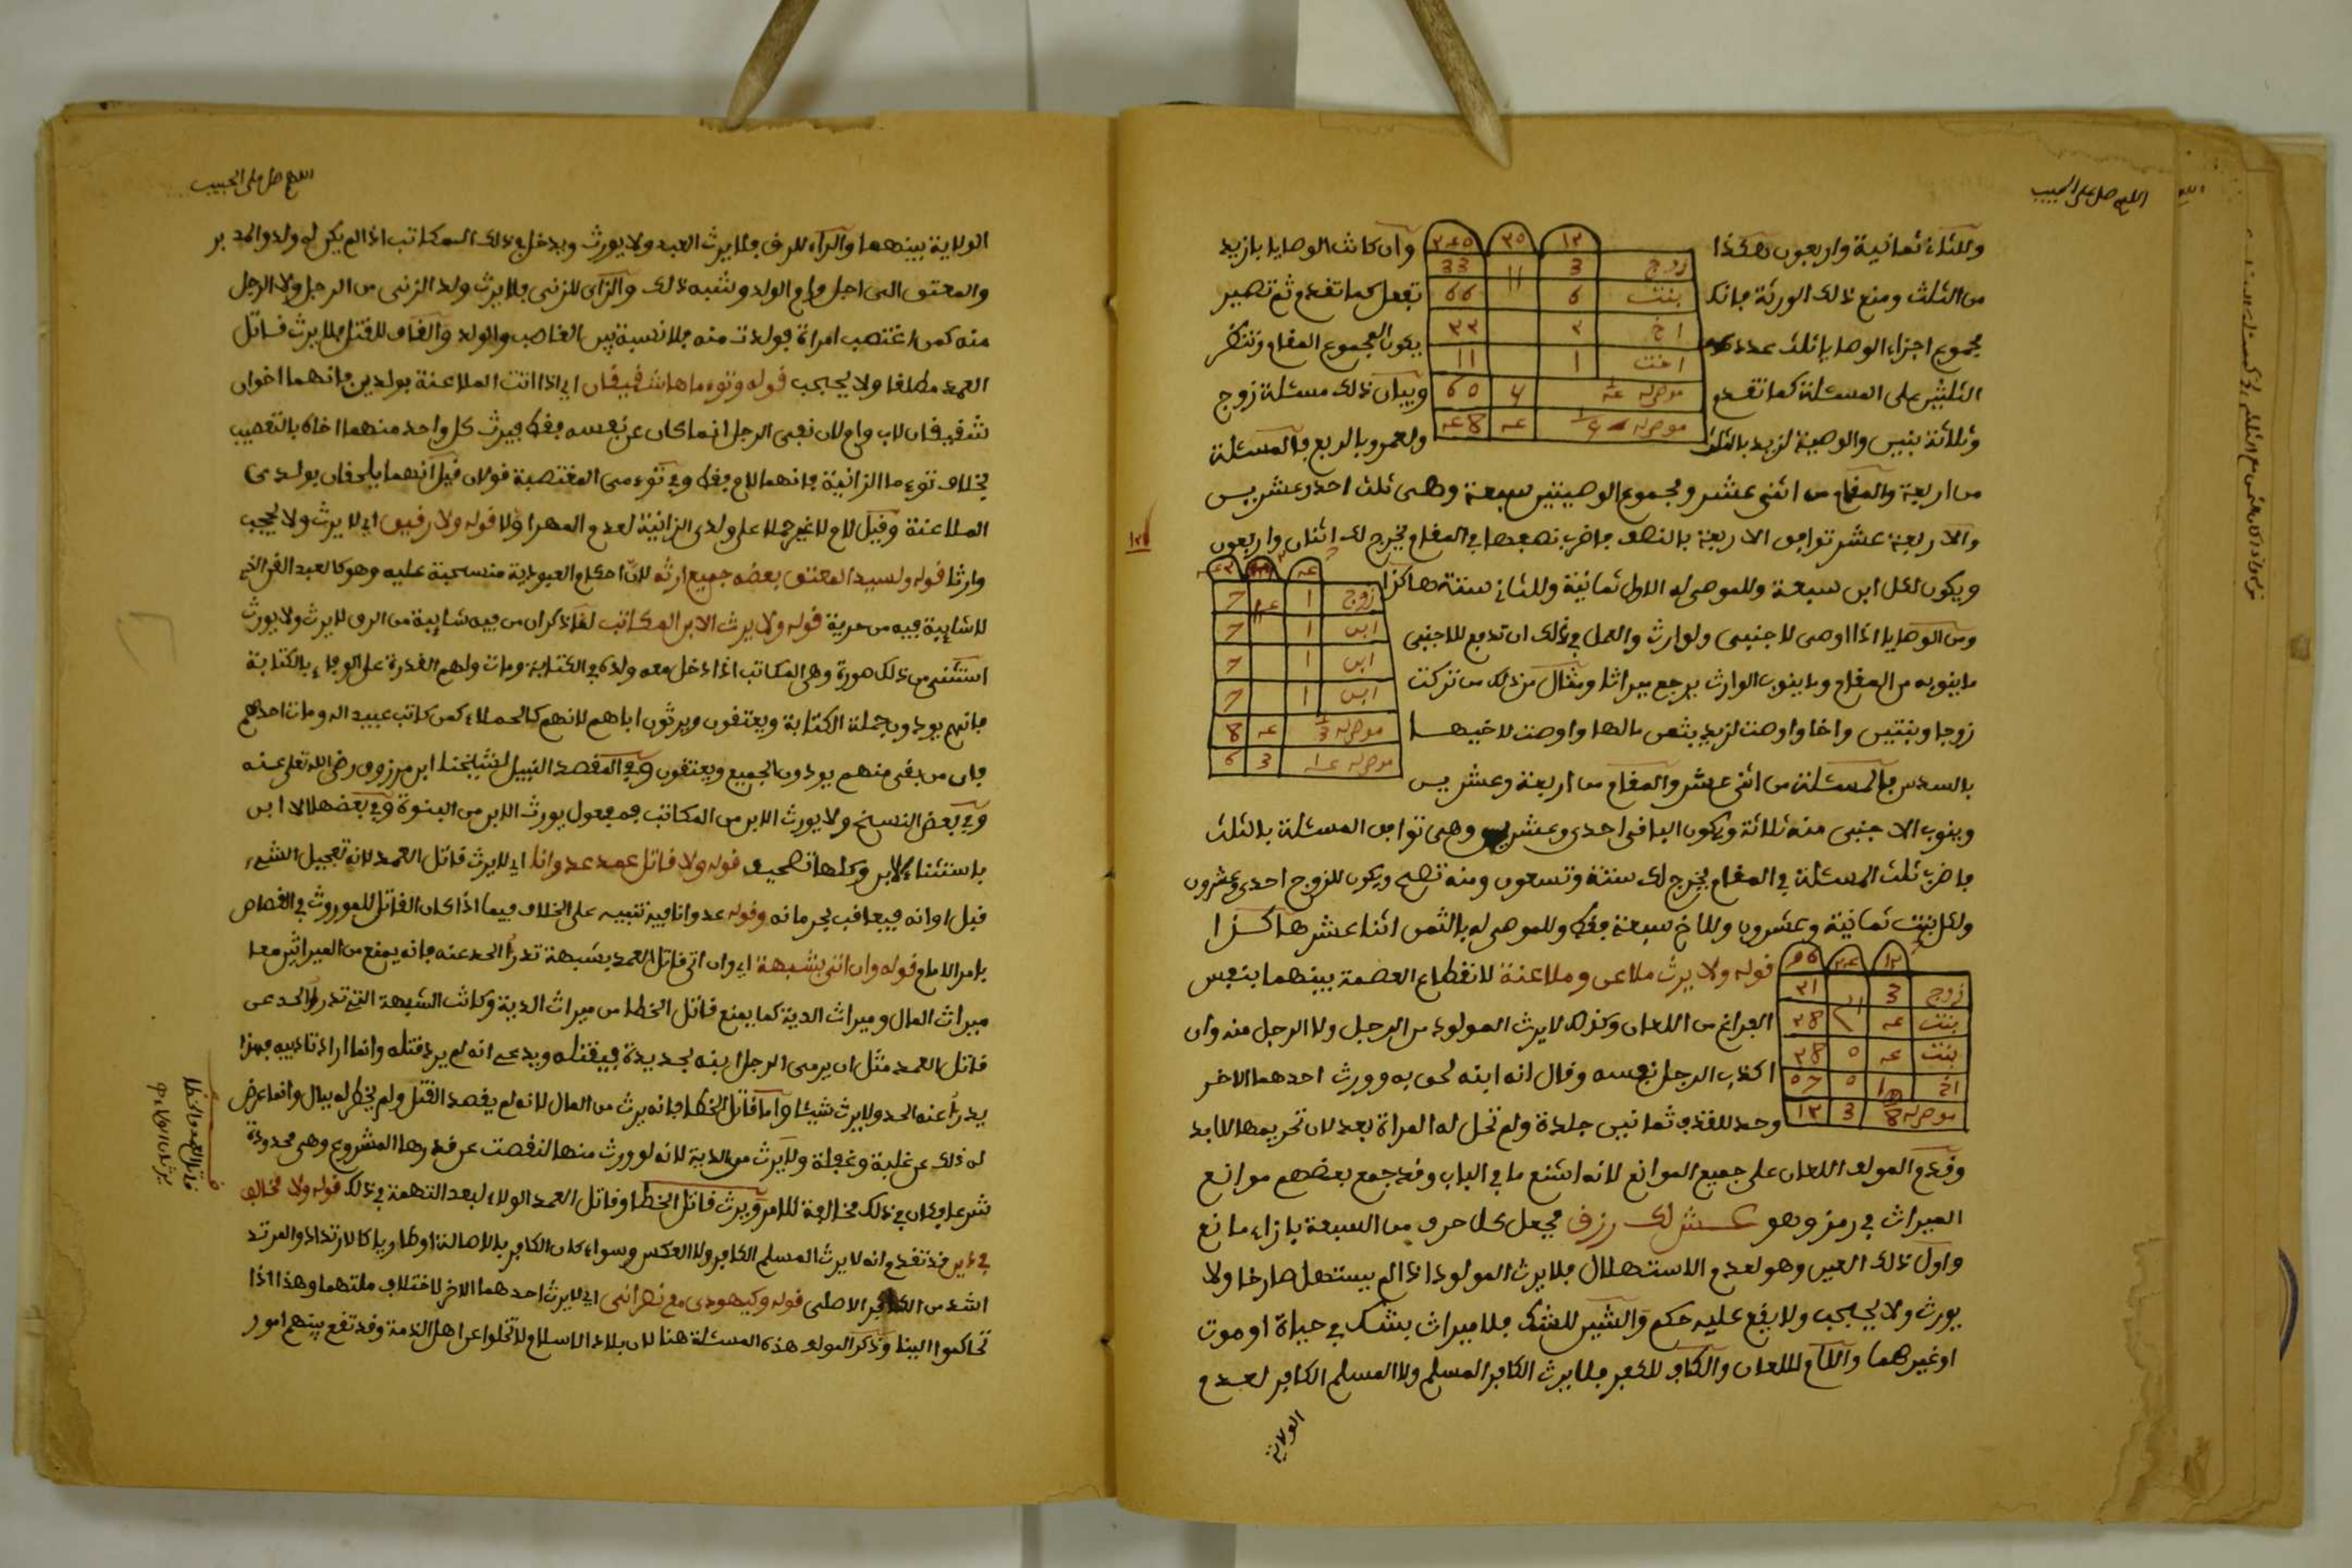 اللهم صل على الحبيب
وللثاني ثمانية واربعون هكذا
وان كانت الوصايا بازيد
من الثلث ومنع ذلك الورثة فانك
تفعل كما تقدم ثم تصير
مجموع اجزاء الوصايا ثلث عدد
يكون المجموع المقام وتنظر
الثلثين على المسئلة كما تقدم
وبيان ذلك مسئلة زوج
وثلاثة بنين والوصية لزيد بالثلث
ولعمرو بالربع فالمسئلة
زوج 3 33
بنت 6 66
اخ
اخت 1 11
من اربعة والمقام من اثنى عشر ومجموع الوصيتين سبعة وهى ثلث احد وعشرين
والاربعة عشر توافق الاربعة بالنصف فاضرب نصفها في المقام يخرج لك اثنان واربعون
ويكون لكل ابن سبعة وللموصى له الاول ثمانية وللثاني ستة هاكذا
زوج 1 7
ابن 1 7
ابن 1 7
ابن 1 7
ومن الوصايا اذا اوصى لاجنبى ولوارث والعمل في ذلك ان تدفع للاجنبى
ما ينوبه من المقام وما ينوب الوارث يرجع ميراثا ومثال من ذلك من تركت
زوجا وبنتين واخا واوصت لزيد بثمن مالها واوصت لاخيها
بالسدس فالمسئلة من اثنى عشر والمقام من اربعة وعشرين
وينوب الاجنبى منه ثلاثة ويكون الباقى احدى وعشرين وهى توافق المسئلة بالثلث
فاضرب ثلث المسئلة في المقام يخرج لك ستة وتسعون ومنه تصح ويكون للزوج احدى وعشرون
ولكل بنت ثمانية وعشرون وللاخ سبعة فقط وللموصى له بالثمن اثنا عشر هاكذا
قوله ولا يرث ملاعن وملاعنة لانقطاع العصمة بينهما بنفس
الفراغ من اللعان وكذلك لا يرث المولود من الرجل ولا الرجل منه وان
اكذب الرجل نفسه وقال انه ابنه لحق به وورث احدهما الاخر
وحد للقذف ثمانين جلدة ولم تحل له المراة بعد لان تحريمها للابد
وقدم المولف اللعان على جميع الموانع لانه اشنع ما في الباب وقد جمع بعضهم موانع
الميراث في رمز وهو عش لك رزق فجعل كل حرف من السبعة بازاء مانع
واول ذلك العين وهو لعدم الاستهلال فلا يرث المولود اذا لم يستهل صارخا ولا
يورث ولا يحجب ولا يقع عليه حكم والشين للشك فلا ميراث بشك في حياة او موت
او غيرهما واللام للعان والكاف للكفر فلا يرث الكافر المسلم ولا المسلم الكافر لعدم
الولاية
اللهم صل على الحبيب
الولاية بينهما والراء للرق فلا يرث العبد ولا يورث ويدخل في ذلك المكاتب اذا لم يكن له ولد والمدبر
والمعتق الى اجل وام الولد وشبه ذلك والزاى للزنى فلا يرث ولد الزنى من الرجل ولا الرجل
منه كمن اغتصب امراة فولدت منه فلا نسبة بين الغاصب والولد والقاف للقتل فلا يرث قاتل
العمد مطلقا ولا يحجب قوله وتوءماها شقيقان اي اذا اتت الملاعنة بولدين فانهما اخوان
شقيقان لاب وام لان نفى الرجل انما كان عن نفسه فقط فيرث كل واحد منهما اخاه بالتعصيب
بخلاف توءما الزانية فانهما لام فقط وفي توءمى المغتصبة قولان قيل انهما يلحقان بولدى
الملاعنة وقيل لام لا غير حملا على ولدى الزانية لعدم المهر اولا قوله ولا رقيق اي لا يرث ولا يحجب
وارثا قوله ولسيد المعتق بعضه جميع ارثه لان احكام العبودية منسحبة عليه وهو كالعبد القن الذي
لا شايبة فيه من حرية قوله ولا يرث الا ابن المكاتب لما ذكر ان من فيه شايبة من الرق لا يرث ولا يورث
استثنى من ذلك صورة وهى المكاتب اذا ادخل معه ولده في الكتابة ومات ولهم القدرة على الوفاء بالكتابة
فانهم يودون جملة الكتابة ويعتقون ويرثون اباهم لانهم كالحملاء كمن كاتب عبيد اله ومات احدهم
فان من بقى منهم يودون الجميع ويعتقون وفي المقصد النبيل لشيخنا ابن مرزوق رضى الله تعلى عنه
وفي بعض النسخ ولا يورث الابن من المكاتب فمفعول يورث الابن من البنوة وفي بعضها الا ابن
باستثناء الابن وكلها تصحيف قوله ولا قاتل عمد عدوانا اي لا يرث قاتل العمد لانه تعجيل الشيء
قبل اوانه فيعاقب بحرمانه وقوله عدوانا فيه تنبيه على الخلاف فيما اذا كان القاتل للموروث في القصاص
بامر الامام وقوله وان اتى بشبهة اي وان اتى قاتل العمد بشبهة تدرا الحد عنه فانه يمنع من الميراثين معا
ميراث المال وميراث الدية كما يمنع قاتل الخطا من ميراث الدية وكانت الشبهة التي تدرا الحد عن
قاتل العمد مثل ان يرمى الرجل ابنه بحديدة فيقتله ويدعى انه لم يرد قتله وانما اراد تاديبه فهذا
يدرا عنه الحد ولا يرث شيئا واما قاتل الخطا فانه يرث من المال لانه لم يقصد القتل ولم يخطر له ببال وانما عرض
له ذلك عن غلبة وغفلة ولا يرث من الدية لانه لو ورث منها لنقصت عن قدرها المشروع وهى محدودة
شرعا فكان في ذلك مخالفة للامر ويرث قاتل الخطا وقاتل العمد الولاء لبعد التهمة في ذلك قوله ولا مخالف
في دين قد تقدم انه لا يرث المسلم الكافر ولا العكس وسواء كان الكافر بالاصالة او طاريا كالارتداد والمرتد
اشد من الكافر الاصلى قوله وكيهودى مع نصرانى اي لا يرث احدهما الاخر لاختلاف ملتهما وهذا اذا
تحاكموا الينا وذكر المولف هذه المسئلة هنا لان بلاد الاسلام لا تخلوا عن اهل الذمة وقد تقع بينهم امور
قاتل العمد والخطا
يرثان الولاء